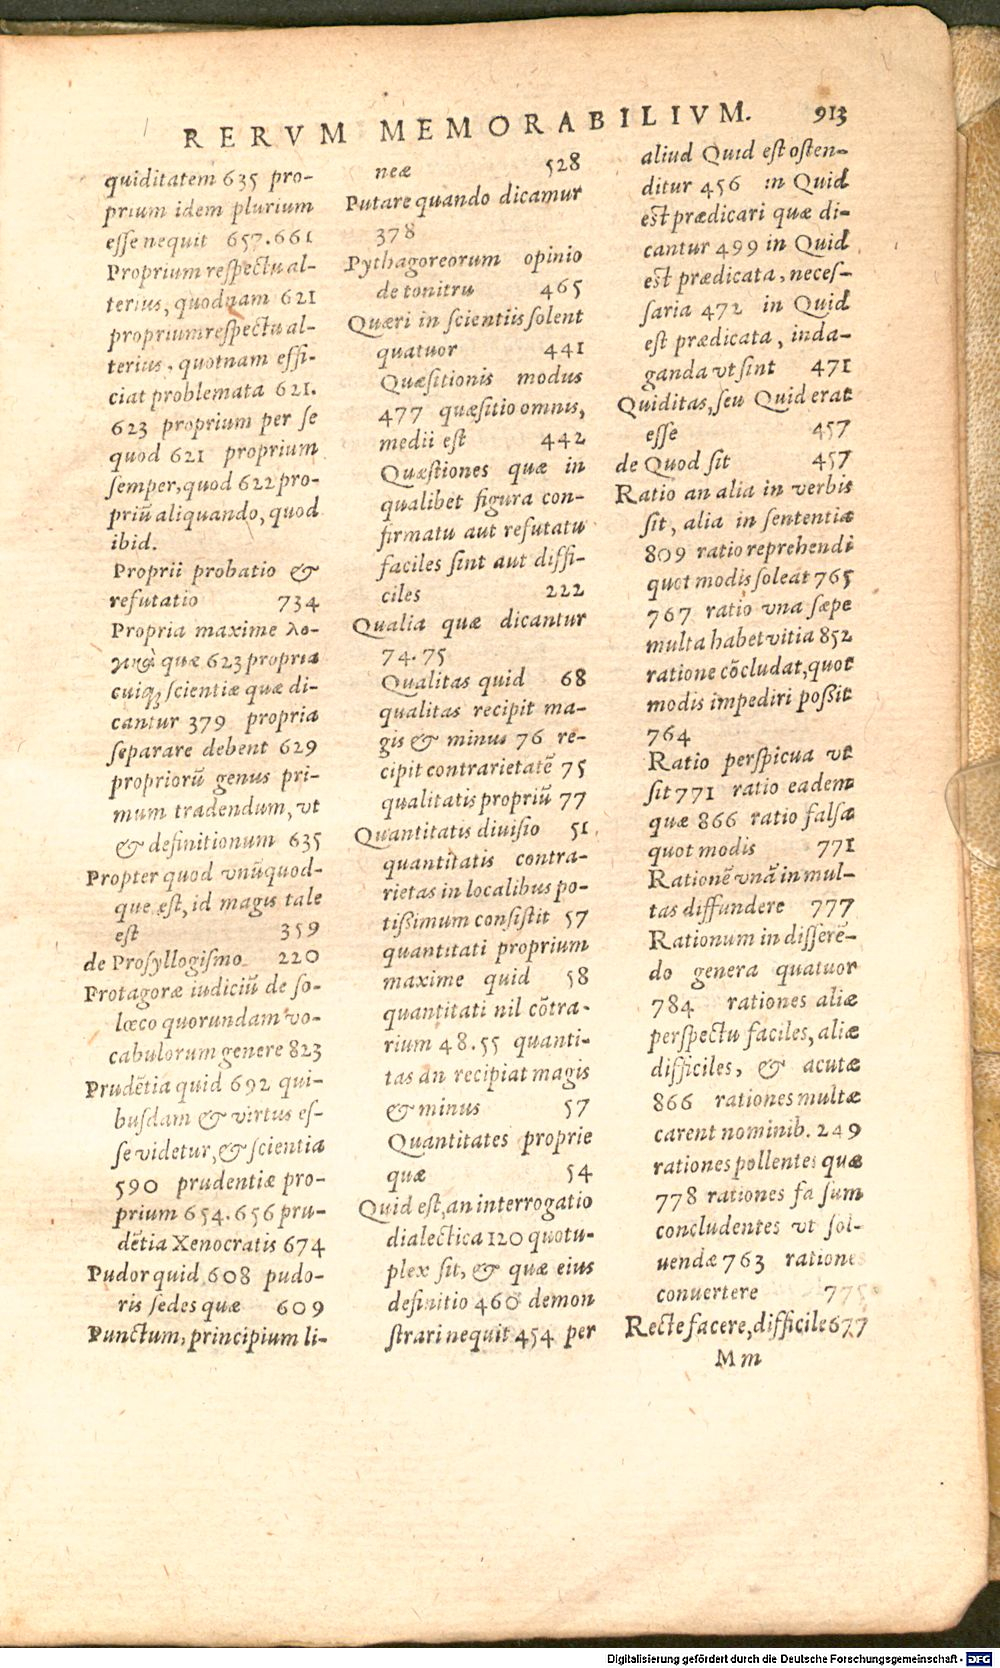 RERVM MEMORABILIVM. 913
quiditatem 635 pro-
prium idem plurium
esse nequit 657.661
Proprium respectu al-
terius, quodnam 621
proprium respectu al-
terius, quotnam effi-
ciat problemata 621.
623 proprium per se
quod 621 proprium
semper, quod 622 pro-
priũ aliquando, quod
ibid.
Proprii probatio &
refutatio 734
Propria maxime λο-
γικὰ quæ 623 propria
cuiq; scientiæ quæ di-
cantur 379 propria
separare debent 629
propriorũ genus pri-
mum tradendum, vt
& definitionum 635
Propter quod vnũquod-
que est, id magis tale
est 359
de Prosyllogismo 220
Protagoræ iudiciũ de so-
lœco quorundam vo-
cabulorum genere 823
Prudẽtia quid 692 qui-
busdam & virtus es-
se videtur, & scientia
590 prudentiæ pro-
prium 654.656 pru-
dẽtia Xenocratis 674
Pudor quid 608 pudo-
ris sedes quæ 609
Punctum, principium li-
neæ 528
Putare quando dicamur
378
Pythagoreorum opinio
de tonitru 465
Quæri in scientiis solent
quatuor 441
Quæsitionis modus
477 quæsitio omnis,
medii est 442
Quæstiones quæ in
qualibet figura con-
firmatu aut refutatu
faciles sint aut diffi-
ciles 222
Qualia quæ dicantur
74.75
Qualitas quid 68
qualitas recipit ma-
gis & minus 76 re-
cipit contrarietatẽ 75
qualitatis propriũ 77
Quantitatis diuisio 51
quantitatis contra-
rietas in localibus po-
tißimum consistit 57
quantitati proprium
maxime quid 58
quantitati nil cõtra-
rium 48.55 quanti-
tas an recipiat magis
& minus 57
Quantitates proprie
quæ 54
Quid est, an interrogatio
dialectica 120 quotu-
plex sit, & quæ eius
definitio 460 demon
strari nequit 454 per
aliud Quid est osten-
ditur 456 in Quid
est prædicari quæ di-
cantur 499 in Quid
est prædicata, neces-
saria 472 in Quid
est prædicata, inda-
ganda vt sint 471
Quiditas, seu Quid erat
esse 457
de Quod sit 457
Ratio an alia in verbis
sit, alia in sententia
809 ratio reprehendi
quot modis soleat 765
767 ratio vna sæpe
multa habet vitia 852
ratione cõcludat, quot
modis impediri poßit
764
Ratio perspicua vt
sit 771 ratio eadem
quæ 866 ratio falsa
quot modis 771
Rationẽ vnã in mul-
tas diffundere 777
Rationum in disserẽ-
do genera quatuor
784 rationes aliæ
perspectu faciles, aliæ
difficiles, & acutæ
866 rationes multæ
carent nominib. 249
rationes pollentes quæ
778 rationes falsum
concludentes vt sol-
uendæ 763 rationes
conuertere 775
Recte facere, difficile 677
Mm
Digitalisierung gefördert durch die Deutsche Forschungsgemeinschaft - DFG